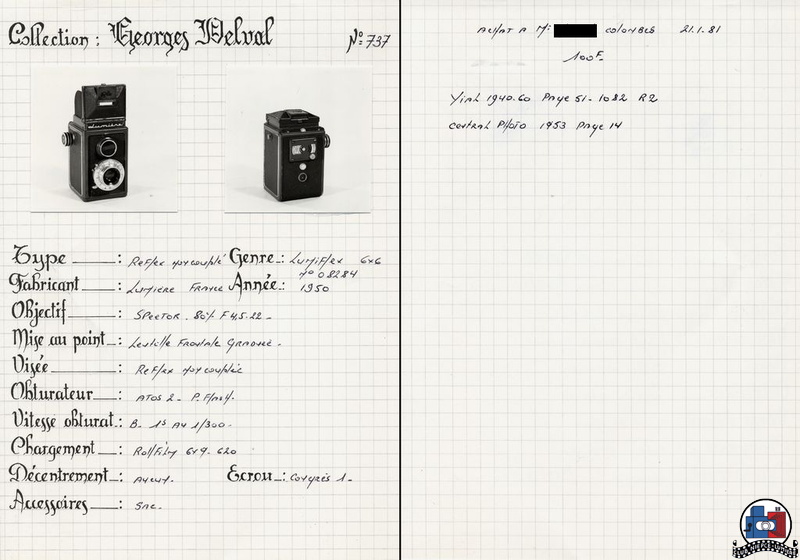 Collection : Georges Delval
N° 737
Lumière
Type : Reflex non couplé Genre : Lumiflex 6x6
n° 08284
Fabricant : Lumière France Année : 1950
Objectif : Spector . 80% F 4,5.22 -
Mise au point : Lentille Frontale Gravée -
Visée : Reflex non couplée
Obturateur : Atos 2 - P. Flash.
Vitesse obturat : B - 1s Au 1/300 -
Chargement : Rollfilm 6x9 - 620
Décentrement : Aucun - Ecrou : Congrès 1 -
Accessoires : Sac -
Achat A Mr Colombes 21.1.81
100F -
Vial 1940.60 Page 51 - 1082 R2
Central Photo 1953 Page 14